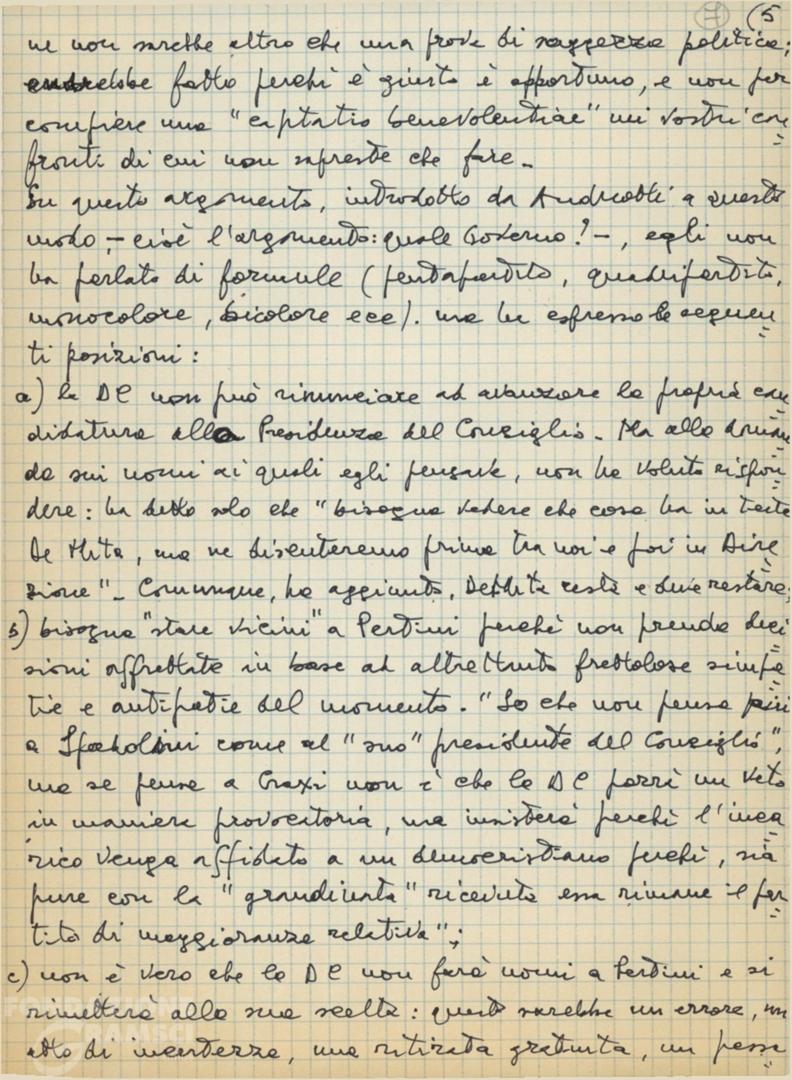 (5
ne non sarebbe altro che una prova di saggezza politica;
andrebbe fatto perchè è giusto e opportuno, e non per
compiere una "captatio benevolentiae" nei vostri con=
fronti di cui non sapreste che fare -
Su questo argomento, introdotto da Andreotti a questo
modo, - cioè l'argomento: quale Governo? -, egli non
ha parlato di formule (pentapartito, quadripartito,
monocolore, bicolore ecc). ma ha espresso le seguen=
ti posizioni:
a) la DC non può rinunciare ad avanzare la propria can=
didatura alla Presidenza del Consiglio. Ma alla doman=
da sui nomi ai quali egli pensava, non ha voluto rispon=
dere: ha detto solo che "bisogna vedere che cosa ha in testa
De Mita, ma ne discuteremo prima tra noi e poi in Dire=
zione" - Comunque, ha aggiunto, De Mita resta e deve restare;
b) bisogna "stare vicini" a Pertini perchè non prenda deci=
sioni affrettate in base ad altrettanto frettolose simpa=
tie e antipatie del momento. "So che non pensa più
a Spadolini come al "suo" presidente del Consiglio",
ma se pensa a Craxi non è che la DC porrà un veto
in maniera provocatoria, ma insisterà perchè l'inca=
rico venga affidato a un democristiano perchè, sia
pure con la "grandinata" ricevuta essa rimane il par=
tito di maggioranza relativa";
c) non è vero che la DC non farà nomi a Pertini e si
rimetterà alla sua scelta: questo sarebbe un errore, un
atto di incertezza, una ritirata gratuita, un pessi=
FONDAZIONE
GRAMSCI